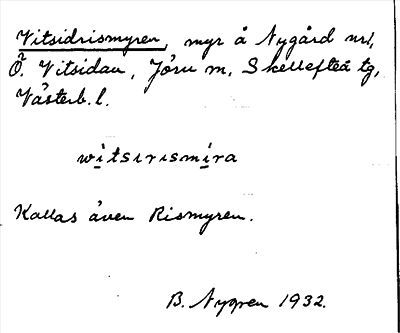 Vitsidrismyren, myr å Nygård nr1,
Ö. Vitsidan, Jörn sn, Skellefteå tg,
Västerb. l.
witsırısmira
Kallas även Rismyren.
B. Nygren 1932.